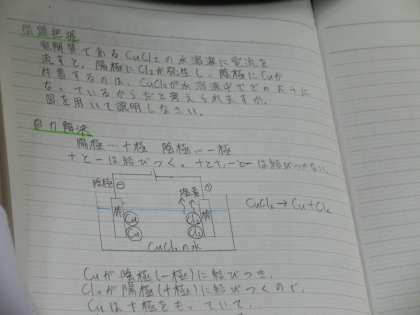 問題把握
電解質であるCuCl₂の水溶液に電流を
流すと、陽極にCl₂が発生し、陰極にCuが
付着するのは、CuCl₂が水溶液中でどのように
なっているからだと考えられますか。
図を用いて説明しなさい。
自力解決
陽極…+極 陰極…−極
+と−は結びつく。+と+,−と−は結びつかない。
陰極 − 塩素 +
CuCl₂→Cu+Cl₂
Cu Cl₂
Cu Cl₂
CuCl₂の水
Cuが陰極(−極)に結びつき、
Cl₂が陽極(+極)に結びつくので、
Cuは+極をもっていて、